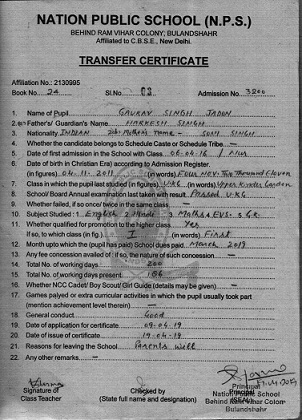 NATION PUBLIC SCHOOL (N.P.S.)
BEHIND RAM VIHAR COLONY, BULANDSHAHR
Affiliated to C.B.S.E., New Delhi.
TRANSFER CERTIFICATE
Affiliation No.: 2130995
Book No.: 24 Sl.No. 03 Admission No. 3200
1. Name of Pupil. GAURAV SINGH JADON
2. Father's/ Guardian's Name HARKESH SINGH
3. Nationality INDIAN Mother's name - SONI SINGH
4. Whether the candidate belongs to Schedule Caste or Schedule Tribe —
5. Date of first admission in the School with Class 06-04-16 / Nur
6. Date of birth in Christian Era) according to Admission Register.
(in figures) 04-11-2011 (in words) Four Nov. Two Thousand Eleven
7. Class in which the pupil last studied (in figures) UKG (in words) Upper Kinder Garden
8. School/ Board Annual examination last taken with result Passed U-KG
9. Whether failed, if so once/ twice in the same class —
10. Subject Studied : 1 English 2 Hindi 3 Maths 4 EVS 5 GK
11. Whether qualified for promotion to the higher class Yes
If so, to which class (in fig.) I (in words) First
12. Month upto which the (pupil has paid) School dues paid. March 2019
13. Any fee concession availed of : if so, the nature of such concession —
14. Total No. of working days 200
15. Total No. of working days present 186
16. Whether NCC Cadet/ Boy Scout/ Girl Guide (details may be given) —
17. Games palyed or extra curricular activities in which the pupil usually took part
(mention achievement level therein) —
18. General conduct Good
19. Date of application of certificate 09-04-19
20. Date of issue of certificate 19-04-19
21. Reasons for leaving the School Parents will
22. Any other remarks. —
Signature of
Class Teacher
Checked by
(State full name and designation)
Principal
Nation Public School
Behind Ram Vihar Colony
Bulandshahr